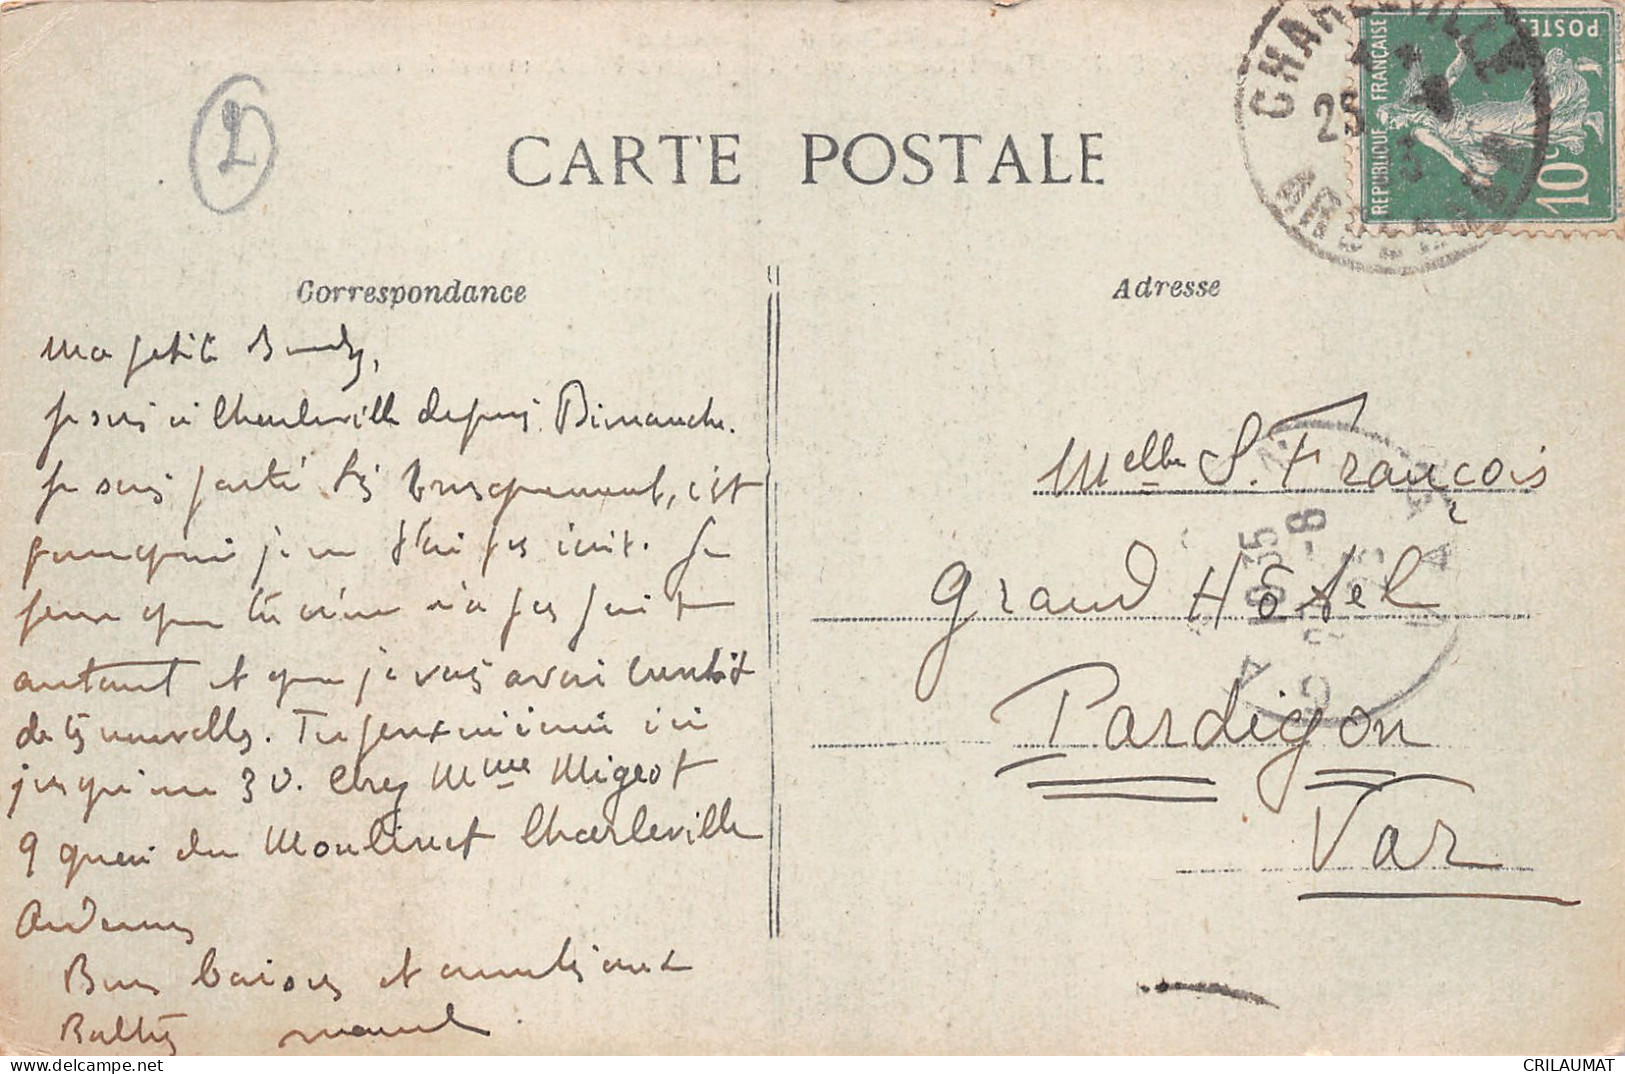 CHARLEVILLE
25
ARDENNES
REPUBLIQUE FRANÇAISE
POSTES
10c
2
CARTE POSTALE
Correspondance
Adresse
Ma petite
Je suis à Charleville depuis Dimanche.
Je suis parti très brusquement, c'est
pourquoi je ne t'ai pas écrit. Je
pense que tu m'en as pas fait
autant et que je vais avoir bientôt
de tes nouvelles. Tu peux m'écrire ici
jusqu'au 30. Chez Mme Migeot
9 quai du Moulinet Charleville
Ardennes
Bons baisers et amitiés aux
Marcel
Melle S. François
Grand Hôtel
Pardigon
Var
10 35
-8
CRILAUMAT